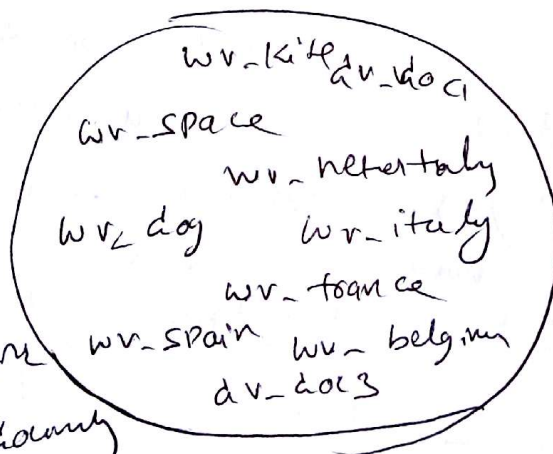 wv_kite dv_doc1
wv_space
wv_netertaly
wv_dog wv_italy
wv_france
wv_spain wv_belgium
dv_doc3